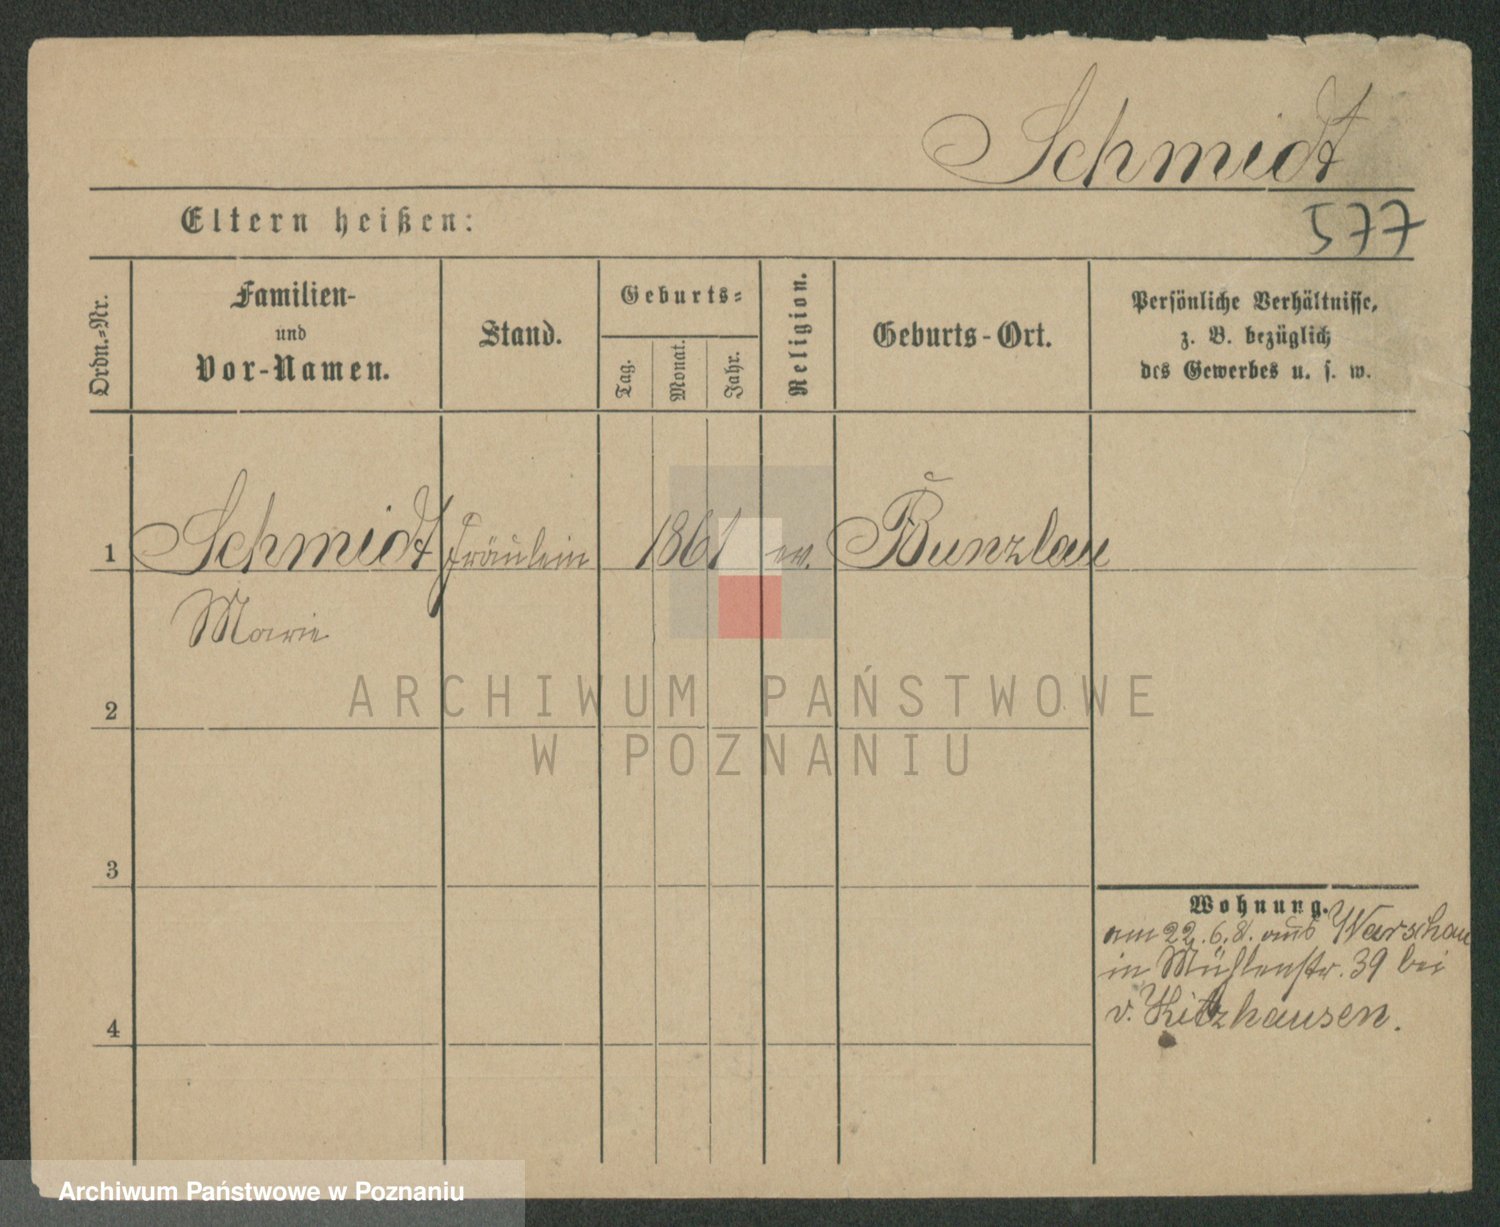 Schmidt
577
Eltern heißen:
Ordn.-Nr.
Familien-
und
Vor-Namen.
Stand.
Geburts-
Tag.
Monat.
Jahr.
Religion.
Geburts-Ort.
Persönliche Verhältnisse,
z. B. bezüglich
des Gewerbes u. s. w.
1 Schmidt Fräulein 1861 ev. Bunzlau
Marie
2
3
4
Wohnung.
am 22.6.8. aus Warschau
in Mühlenstr. 39 bei
v. Kitzhausen.
ARCHIWUM PAŃSTWOWE
W POZNANIU
Archiwum Państwowe w Poznaniu